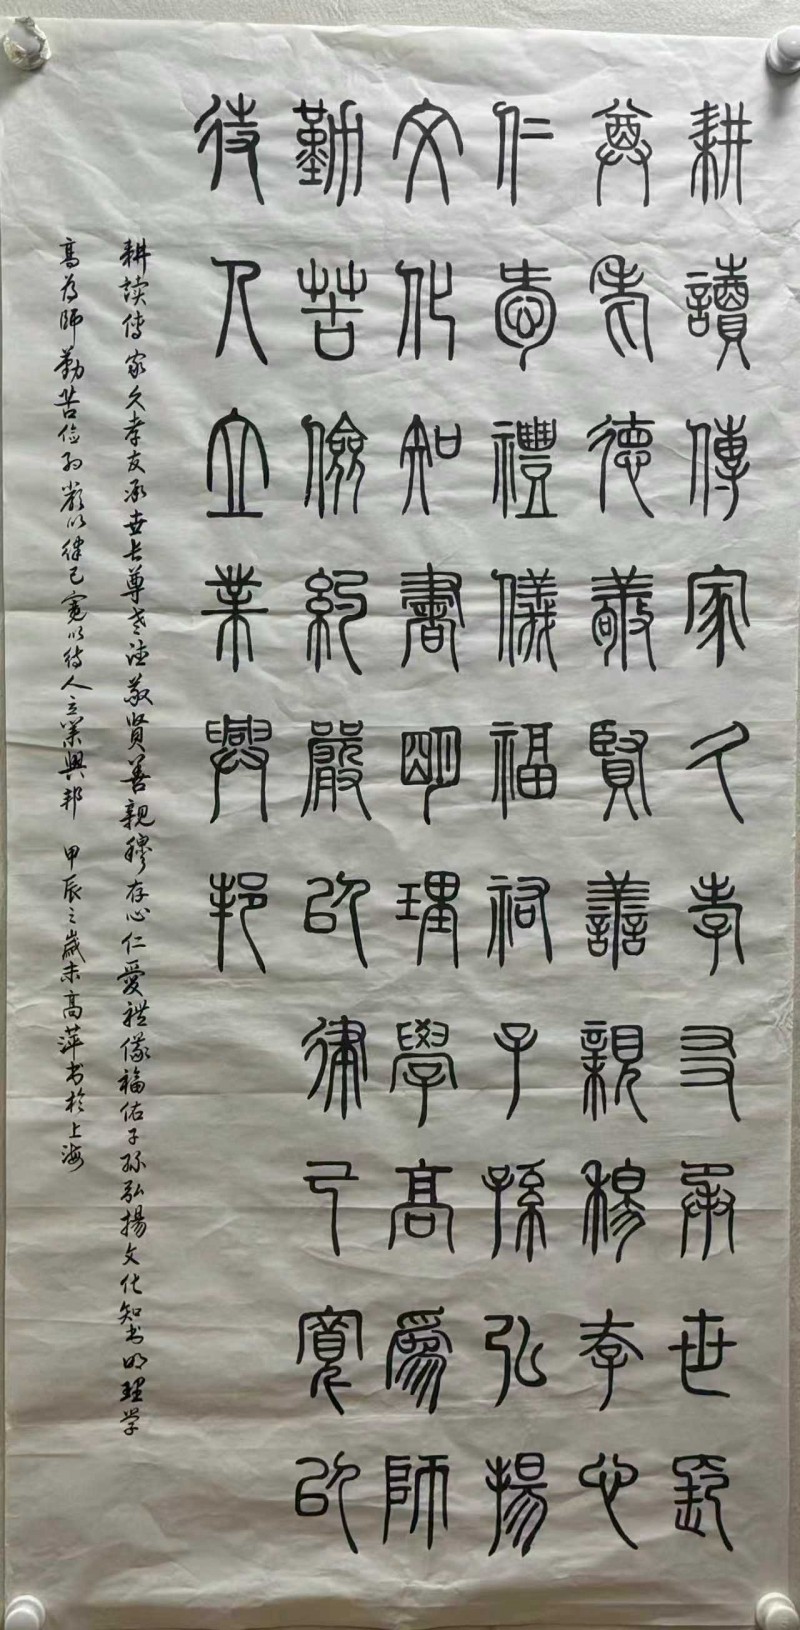 耕讀傳家久孝友承世長
尊老德敬賢善親穆存心
仁愛禮儀福祐子孫弘揚
文化知書明理學高為師
勤苦儉約嚴以律己寬以
待人立業興邦
耕读传家久孝友承世长尊老德敬贤善親穆存心仁愛礼儀福佑子孙弘揚文化知书明理学
高为师勤苦俭约严以律己宽以待人立業興邦 甲辰之歲末高萍书於上海